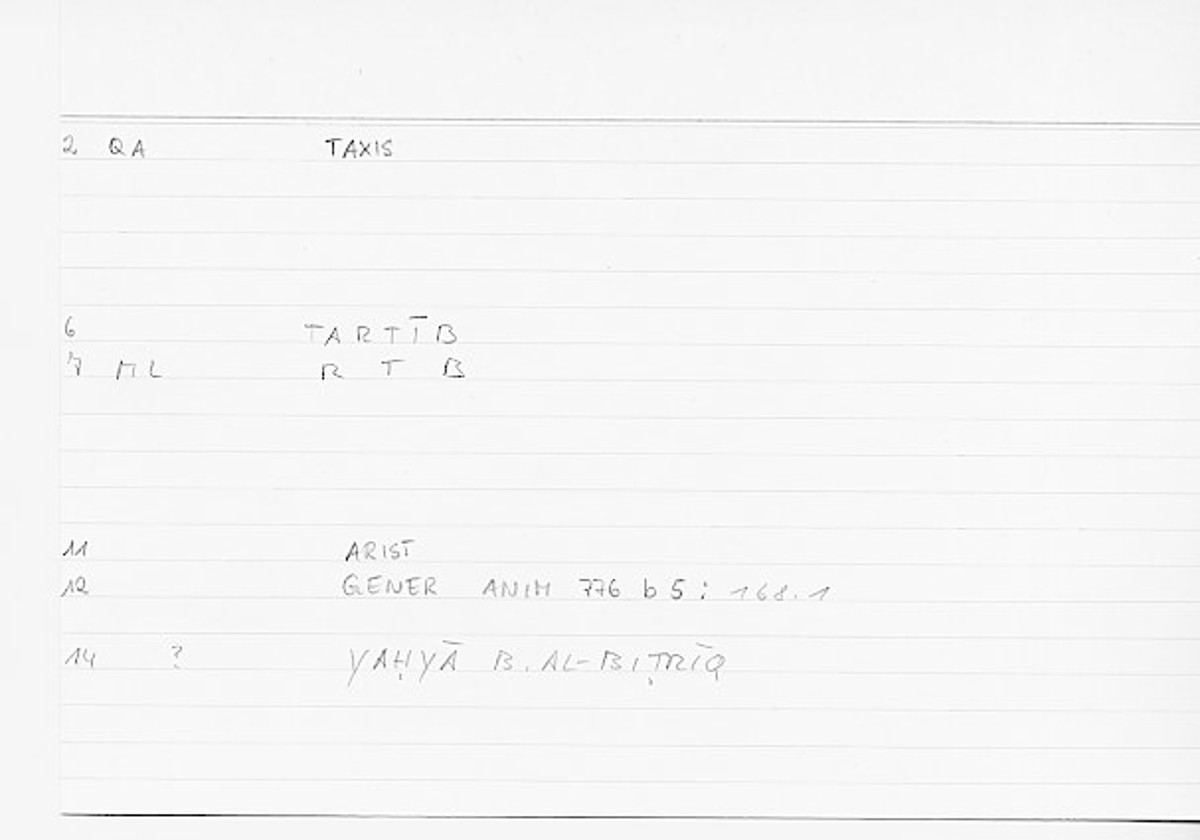 2 QA TAXIS
6 TARTĪB
7 ML R T B
11 ARIST
12 GENER ANIM 776 b 5 : 168.1
14 ? YAḤYĀ B. AL-BIṬRĪQ